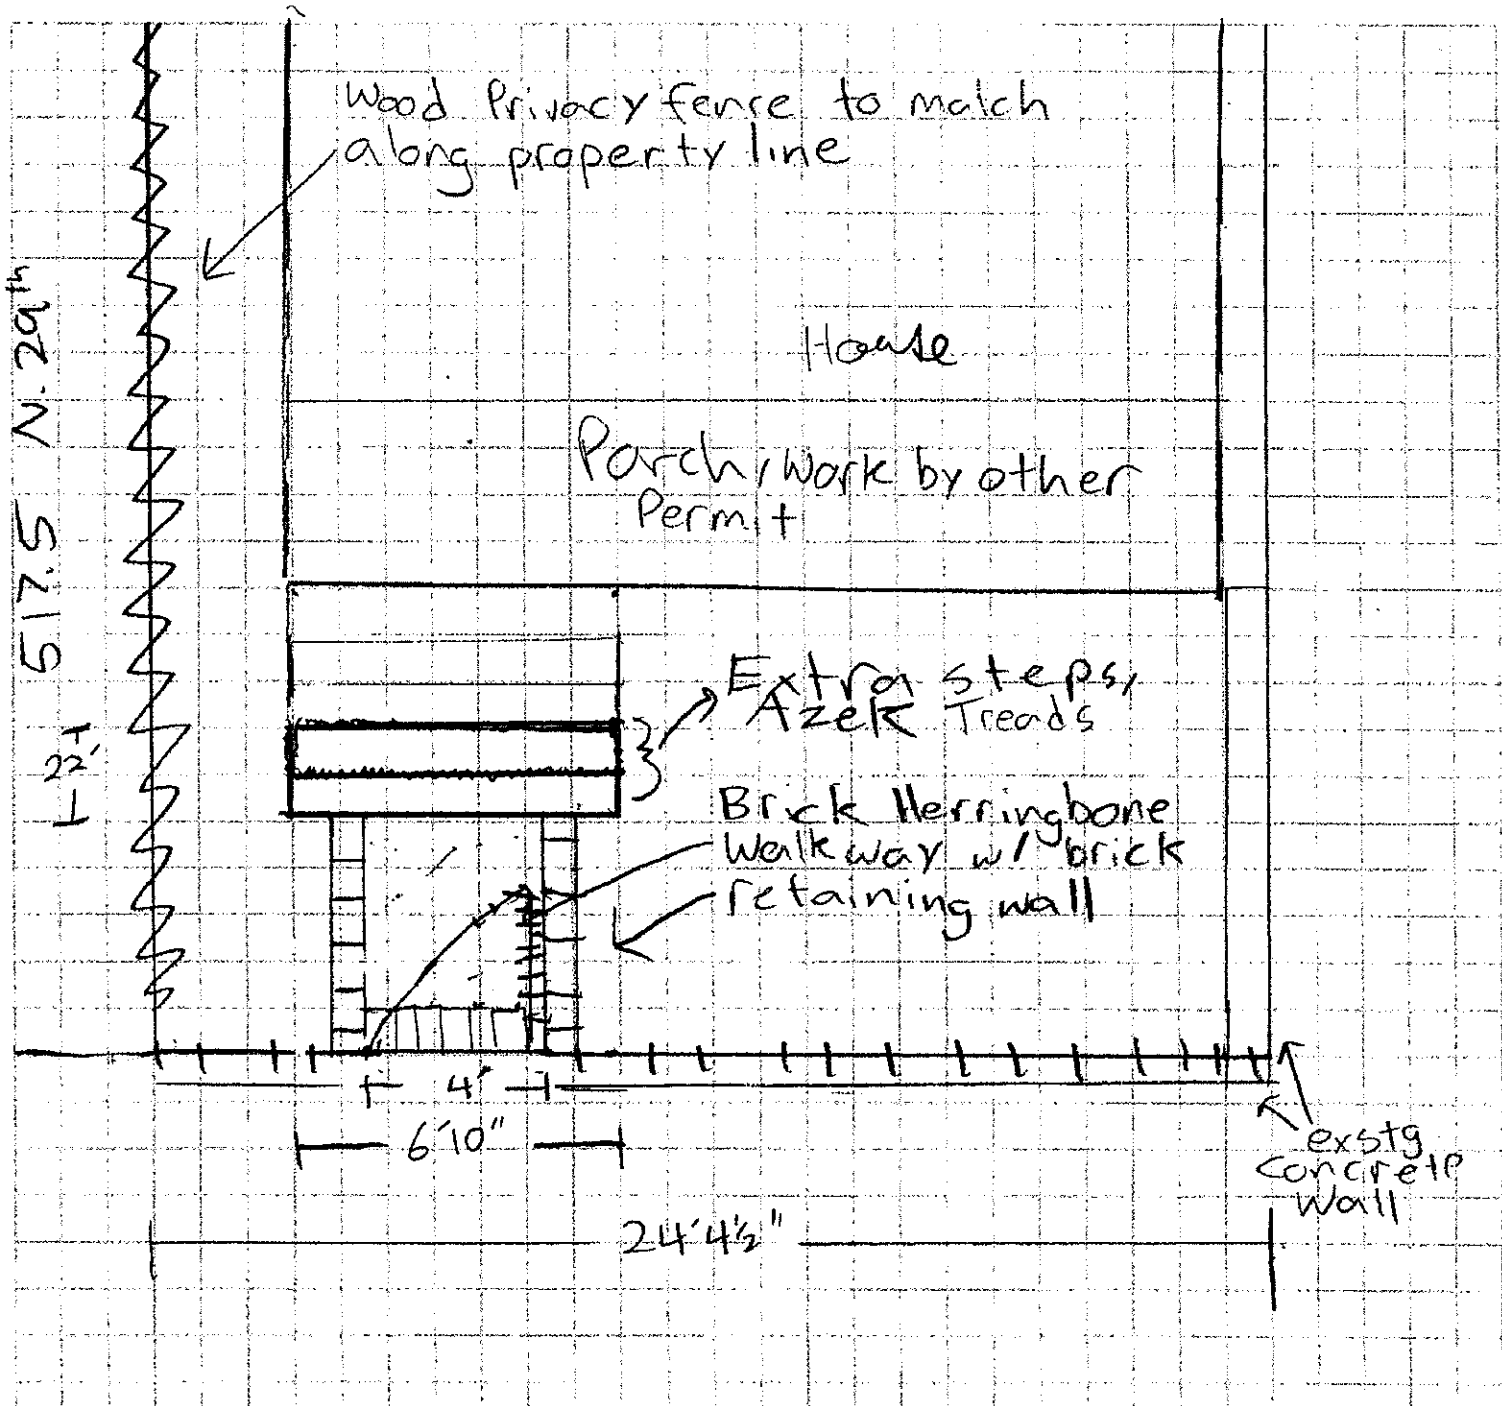 Wood Privacy fence to match
along property line
House
Porch, Work by other
Permit
517.5 N. 29th
22'
Extra steps,
Azek Treads
Brick Herringbone
Walkway w/ brick
retaining wall
4'
6'10"
exstg
concrete
wall
24'4½"